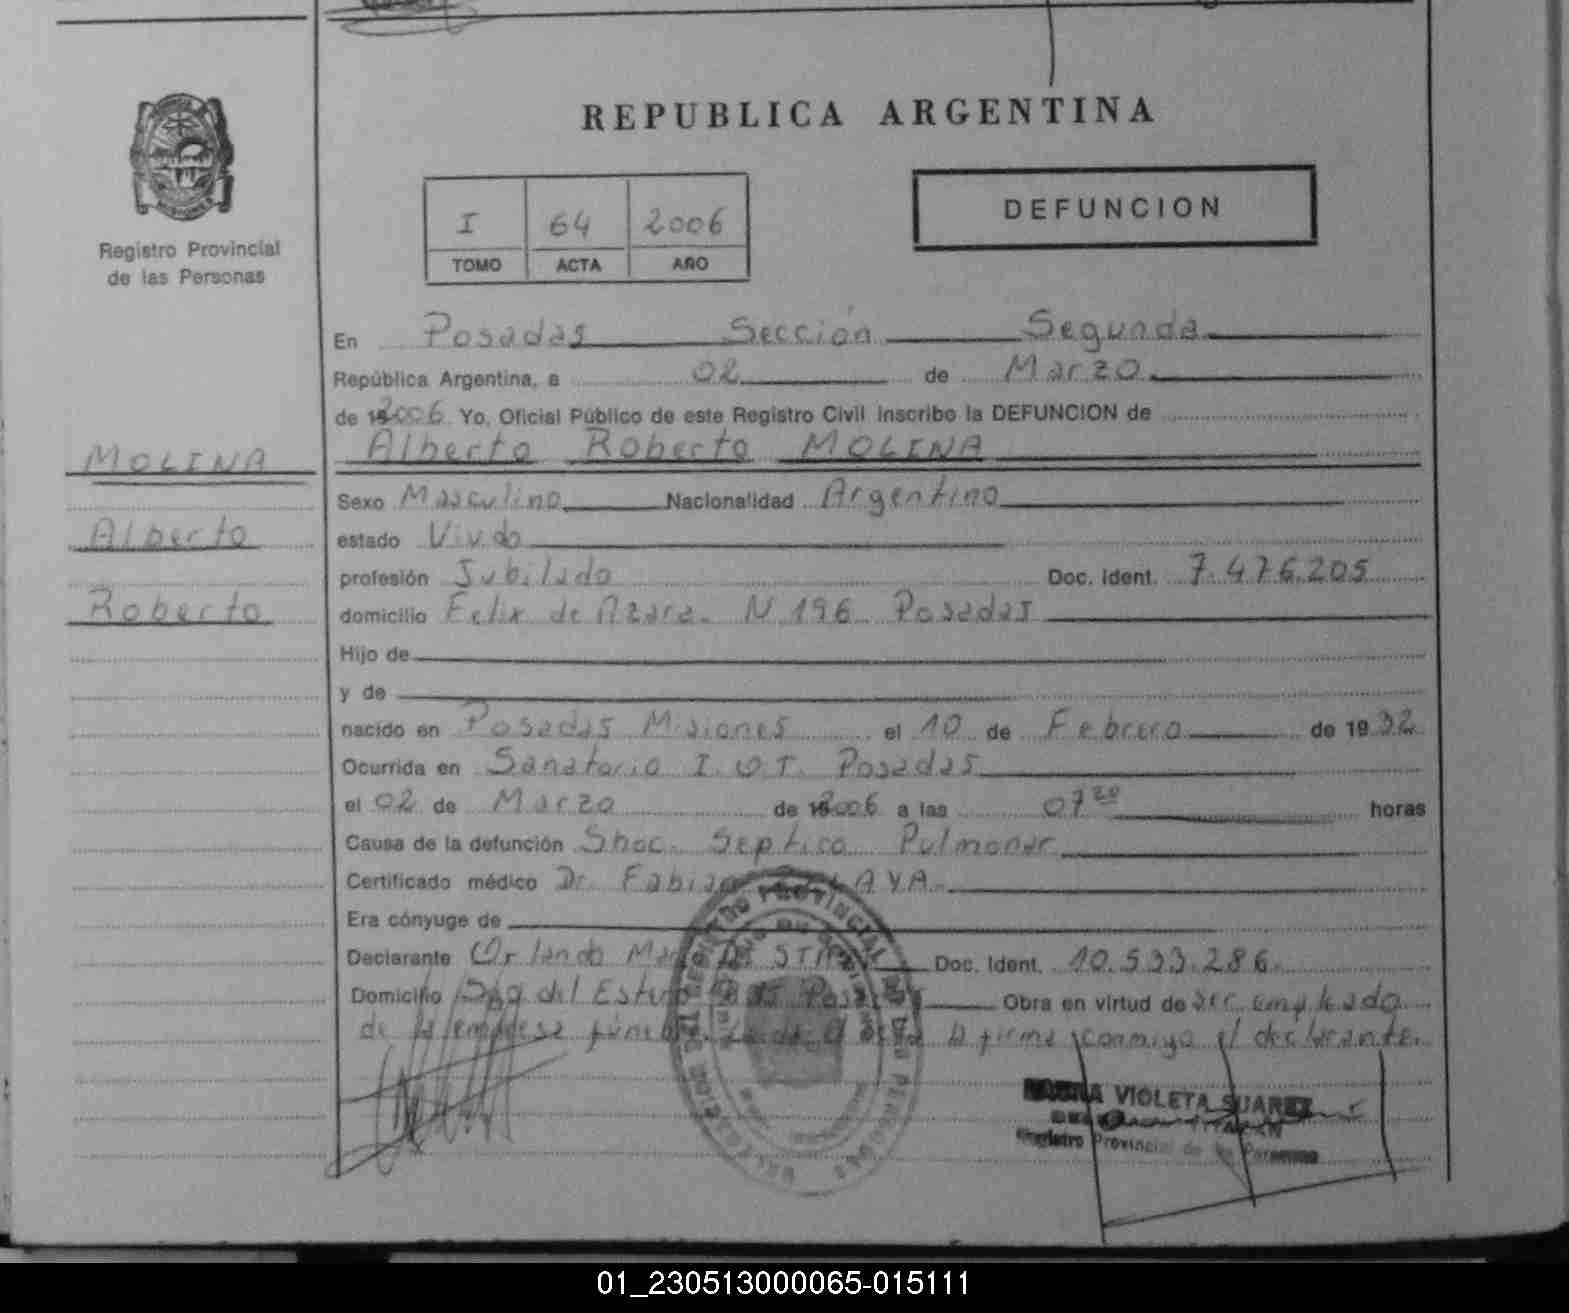 REPUBLICA ARGENTINA
DEFUNCION
I 64 2006
TOMO ACTA AÑO
Registro Provincial
de las Personas
MOLINA
Alberto
Roberto
En Posadas Sección Segunda
República Argentina, a 02 de Marzo
de 2006 Yo, Oficial Público de este Registro Civil inscribo la DEFUNCION de
Alberto Roberto MOLINA
Sexo Masculino Nacionalidad Argentino
estado Viudo
profesión Jubilado Doc. Ident. 7.476.205
domicilio Felix de Azara N 196 Posadas
Hijo de
y de
nacido en Posadas Misiones el 10 de Febrero de 1932
Ocurrida en Sanatorio I.O.T. Posadas
el 02 de Marzo de 2006 a las 07 20 horas
Causa de la defunción Shoc Septico Pulmonar
Certificado médico Dr. Fabian
Era cónyuge de
Declarante Orlando Doc. Ident. 10.533.286
Domicilio Sgo del Obra en virtud de ser empleado
de la empresa la firma conmigo el declarante.
VIOLETA SUAREZ
Registro Provincial de las Personas
01_230513000065-015111